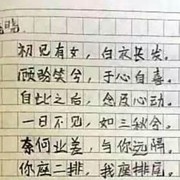 初见有女，白衣长发。
顾盼笑兮，于心自喜。
自此之后，念心动。
一日不见，如三秋兮。
奈何业差，与你远隔。
你座二排，我座排尾。